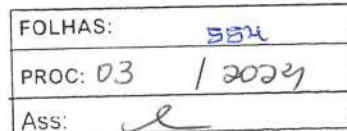 FOLHAS: 554
PROC: 03 / 2024
Ass: